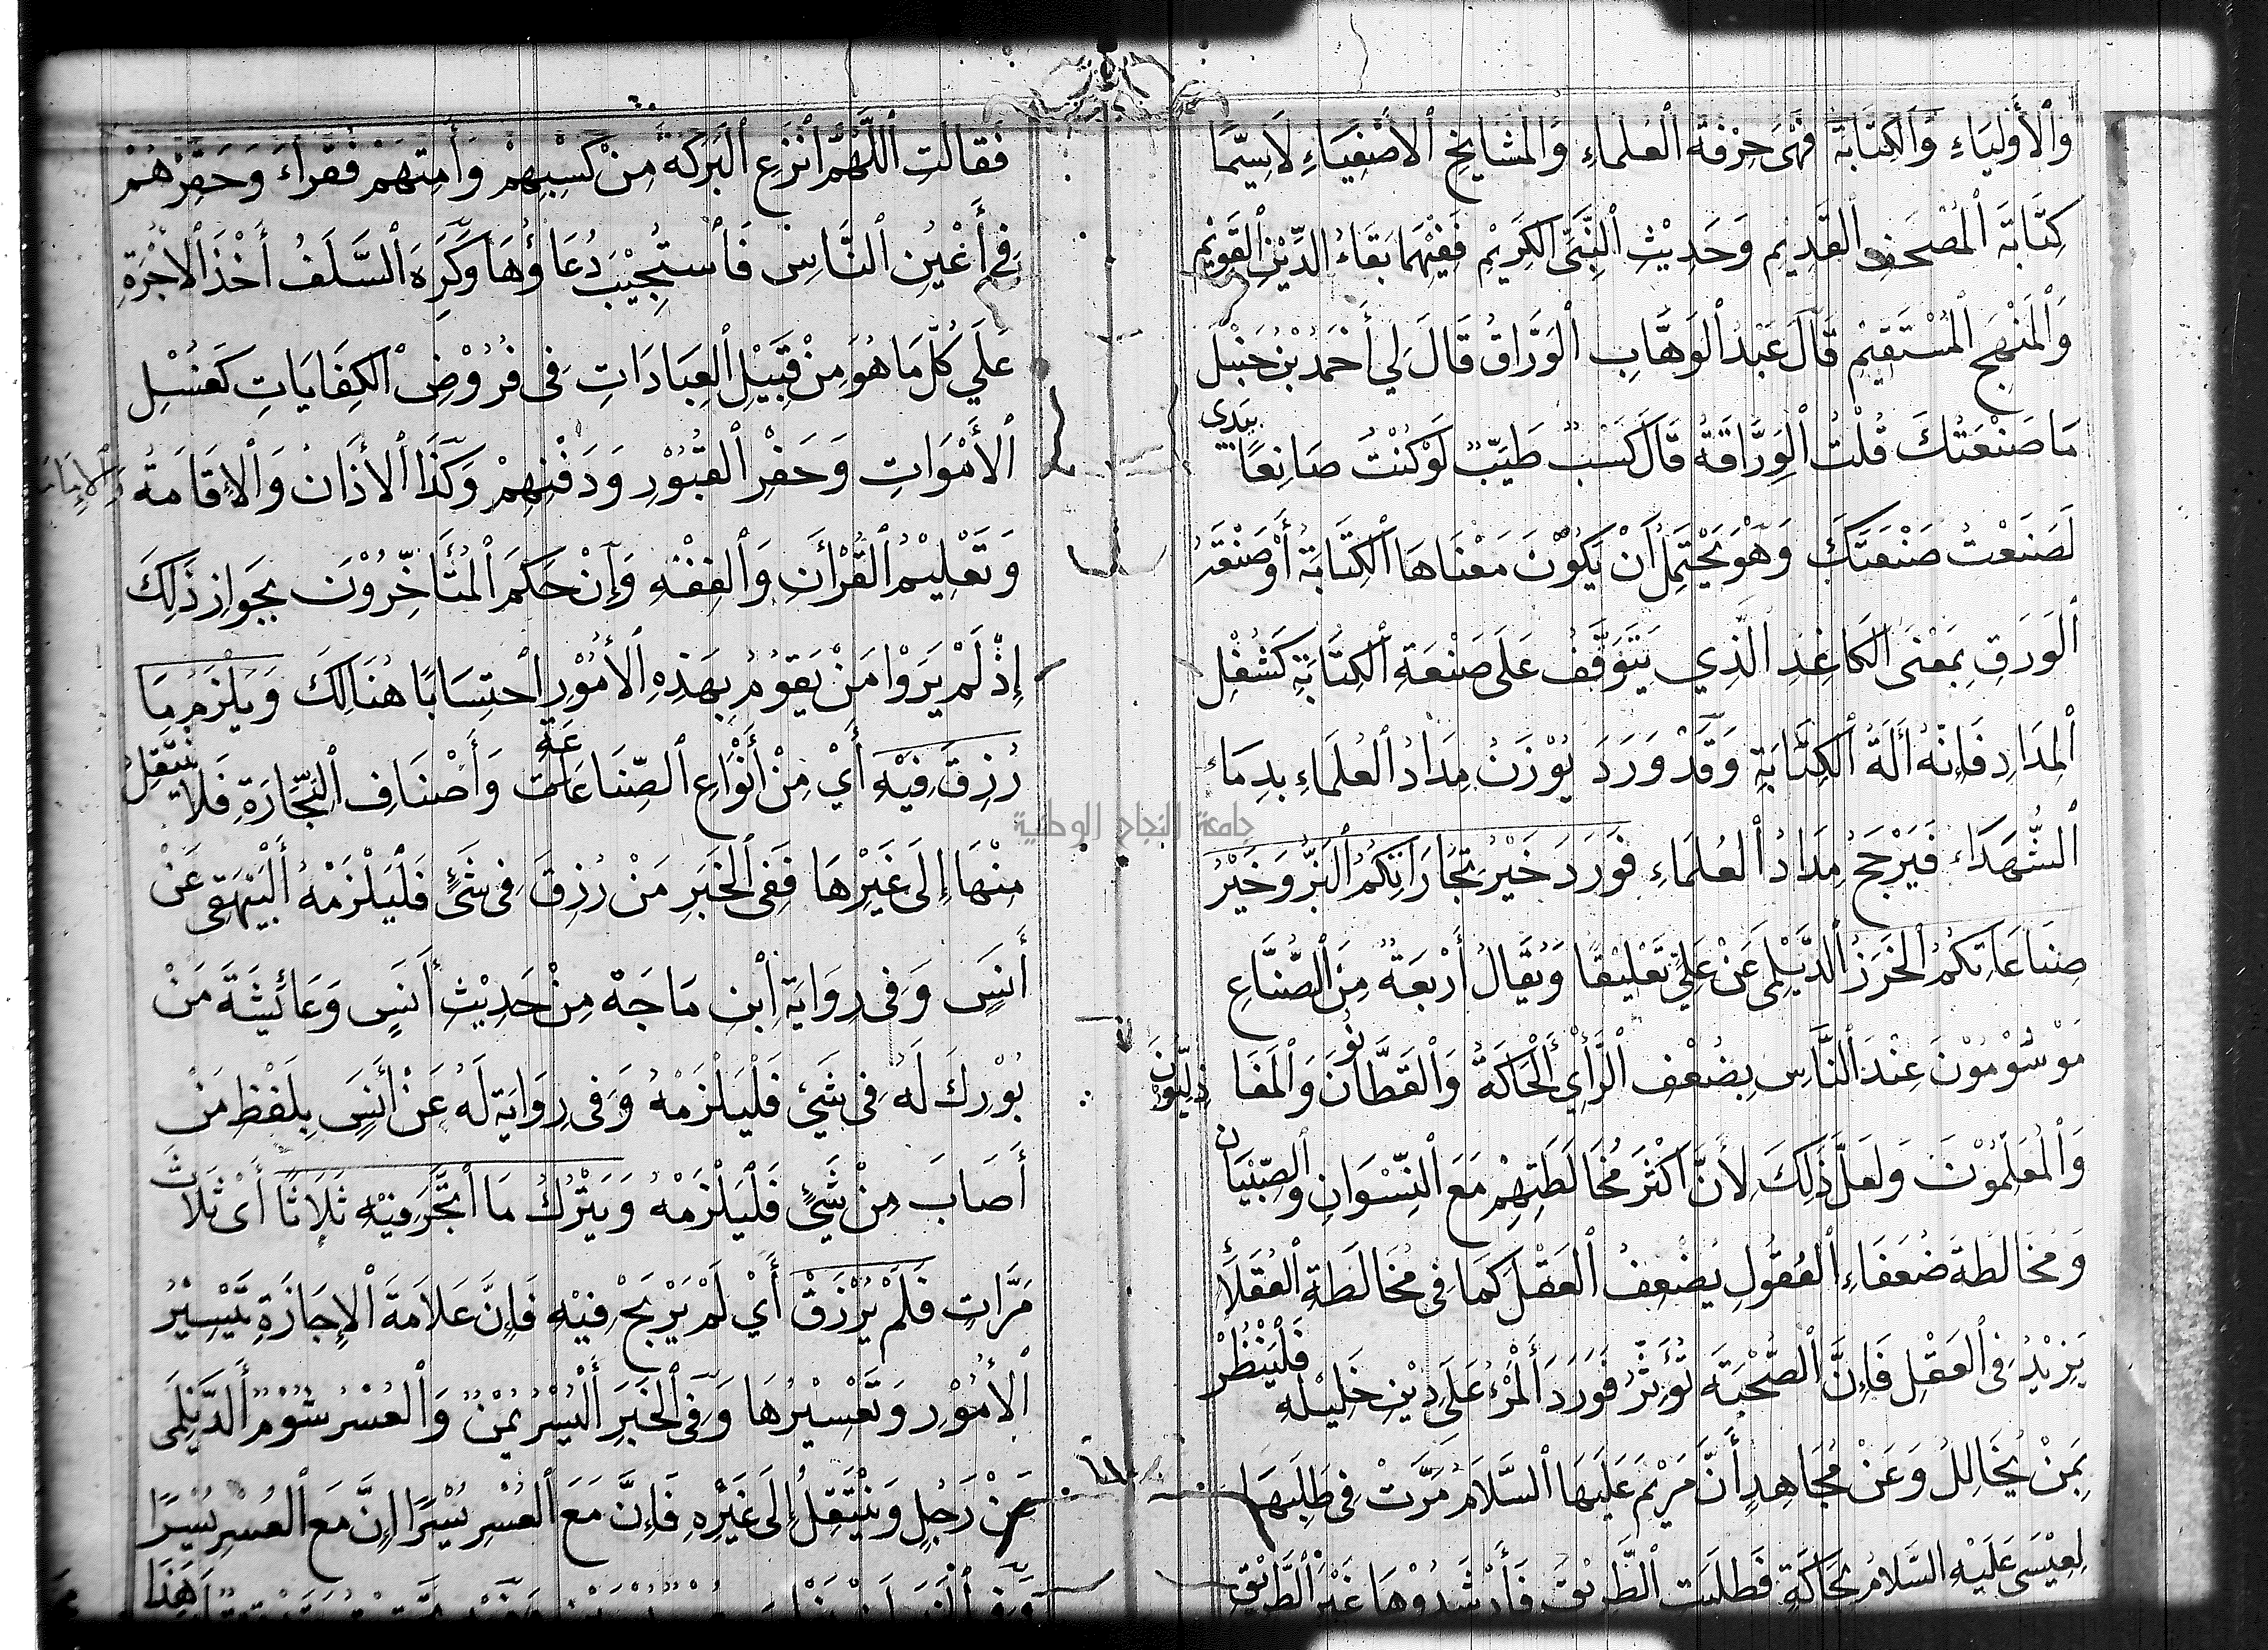 وَالْأَوْلِيَاءِ وَالْكِتَابَةَ فَهِيَ حِرْفَةُ الْعُلَمَاءِ وَالْمَشَايِخِ الْأَصْفِيَاءِ لَاسِيَّمَا
كِتَابَةَ الْمُصْحَفِ الْقَدِيمِ وَحَدِيْثِ النَّبِيِّ الْكَرِيْمِ فَفِيْهِمَا بَقَاءُ الدِّيْنِ الْقَوِيْمِ
وَالْمَنْهَجِ الْمُسْتَقِيْمِ قَالَ عَبْدُ الْوَهَّابِ الْوَرَّاقُ قَالَ لِي أَحْمَدُ بْنُ حَنْبَلَ
مَا صَنْعَتُكَ قُلْتُ الْوِرَّاقَةُ قَالَ كَسْبٌ طَيِّبٌ لَوْ كُنْتُ صَانِعًا بِيَدِي
لَصَنَعْتُ صَنْعَتَكَ وَهُوَ يَحْتَمِلُ أَنْ يَكُوْنَ مَعْنَاهَا الْكِتَابَةُ أَوْ صَنْعَةُ
الْوَرَقِ بِمَعْنَى الْكَاغِدِ الَّذِي يَتَوَقَّفُ عَلَى صَنْعَةِ الْكِتَابَةِ كَشُغْلِ
الْمِدَادِ فَإِنَّهُ أَلَةُ الْكِتَابَةِ وَقَدْ وَرَدَ يُوْزَنُ مِدَادُ الْعُلَمَاءِ بِدِمَاءِ
الشُّهَدَاءِ فَيَرْجَحُ مِدَادُ الْعُلَمَاءِ فَوَرَدَ خَيْرُ تِجَارَاتِكُمُ الْبَزُّ وَخَيْرُ
صِنَاعَاتِكُمُ الْخَرَزُ الدَّيْلَمِى عَنْ عَلِيٍّ تَعْلِيْقًا وَيُقَالُ أَرْبَعَةٌ مِنَ الصُّنَّاعِ
مَوْسُوْمُوْنَ عِنْدَ النَّاسِ بِضُعْفِ الرَّأْيِ الْحَاكَةُ وَالْقَطَّانُوْنَ وَالْمَغَازِلِيُّوْنَ
وَالْمُعَلِّمُوْنَ وَلَعَلَّ ذَلِكَ لِأَنَّ أَكْثَرَ مُخَالَطَتِهِمْ مَعَ النِّسْوَانِ وَالصِّبْيَانِ
وَمُخَالَطَةُ ضُعَفَاءِ الْعُقُولِ يُضْعِفُ الْعَقْلَ كَمَا فِى مُخَالَطَةِ الْعُقَلَاءِ
يَزِيْدُ فِى الْعَقْلِ فَإِنَّ الصُّحْبَةَ تُؤَثِّرُ فَوَرَدَ أَلْمَرْءُ عَلَى دِيْنِ خَلِيْلِهِ فَلْيَنْظُرْ
بِمَنْ يُخَالِلُ وَعَنْ مُجَاهِدٍ أَنَّ مَرْيَمَ عَلَيْهَا السَّلَامُ مَرَّتْ فِى طَلَبِهَا
لِعِيْسَى عَلَيْهِ السَّلَامُ بِحَاكَةٍ فَطَلَبَتِ الطَّرِيْقَ فَأَرْشَدُوْهَا غَيْرَ الطَّرِيْقِ
فَقَالَتِ اللَّهُمَّ انْزَعِ الْبَرَكَةَ مِنْ كَسْبِهِمْ وَأَمِتْهُمْ فُقَرَاءَ وَحَقِّرْهُمْ
فِي أَعْيُنِ النَّاسِ فَاسْتُجِيْبَ دُعَاؤُهَا وَكَرِهَ السَّلَفُ أَخْذَ الْأُجْرَةِ
عَلَى كُلِّ مَا هُوَ مِنْ قَبِيْلِ الْعِبَادَاتِ فِى فُرُوْضِ الْكِفَايَاتِ كَغُسْلِ
الْأَمْوَاتِ وَحَفْرِ الْقُبُوْرِ وَدَفْنِهِمْ وَكَذَا الْأَذَانُ وَالْإِقَامَةُ وَالْإِمَامَةُ
وَتَعْلِيْمُ الْقُرْأَنِ وَالْفِقْهِ وَإِنْ حَكَمَ الْمُتَأَخِّرُوْنَ بِجَوَازِ ذَلِكَ
إِذْ لَمْ يَرَوْا مَنْ يَقُوْمُ بِهَذِهِ الْأُمُوْرِ احْتِسَابًا هُنَالِكَ وَيَلْزَمُ مَا
رُزِقَ فِيْهِ أَيْ مِنْ أَنْوَاعِ الصِّنَاعَةِ وَأَصْنَافِ التِّجَارَةِ فَلَا يَنْتَقِلُ
مِنْهَا إِلَى غَيْرِهَا فَفِى الْخَبَرِ مَنْ رُزِقَ فِى شَيْءٍ فَلْيَلْزَمْهُ أَلْبَيْهَقِى عَنْ
أَنَسٍ وَفِى رِوَايَةِ ابْنِ مَاجَهْ مِنْ حَدِيْثِ أَنَسٍ وَعَائِشَةَ مَنْ
بُوْرِكَ لَهُ فِى شَيْءٍ فَلْيَلْزَمْهُ وَفِى رِوَايَةٍ لَهُ عَنْ أَنَسٍ بِلَفْظِ مَنْ
أَصَابَ مِنْ شَيْءٍ فَلْيَلْزَمْهُ وَيَتْرُكُ مَا اتَّجَرَ فِيْهِ ثَلَاثًا أَيْ ثَلَاثَ
مَرَّاتٍ فَلَمْ يُرْزَقْ أَيْ لَمْ يَرْبَحْ فِيْهِ فَإِنَّ عَلَامَةَ الْإِجَازَةِ تَيْسِيْرُ
الْأُمُوْرِ وَتَعْسِيْرُهَا وَفِي الْخَبَرِ أَلْيُسْرُ يُمْنٌ وَالْعُسْرُ شُوْمٌ أَلدَّيْلَمِى
عَنْ رَجُلٍ وَيَنْتَقِلُ إِلَى غَيْرِهِ فَإِنَّ مَعَ الْعُسْرِ يُسْرًا إِنَّ مَعَ الْعُسْرِ يُسْرًا
هَذَا
جامعة النجاح الوطنية